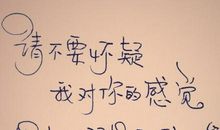 请不要怀疑
我对你的感觉